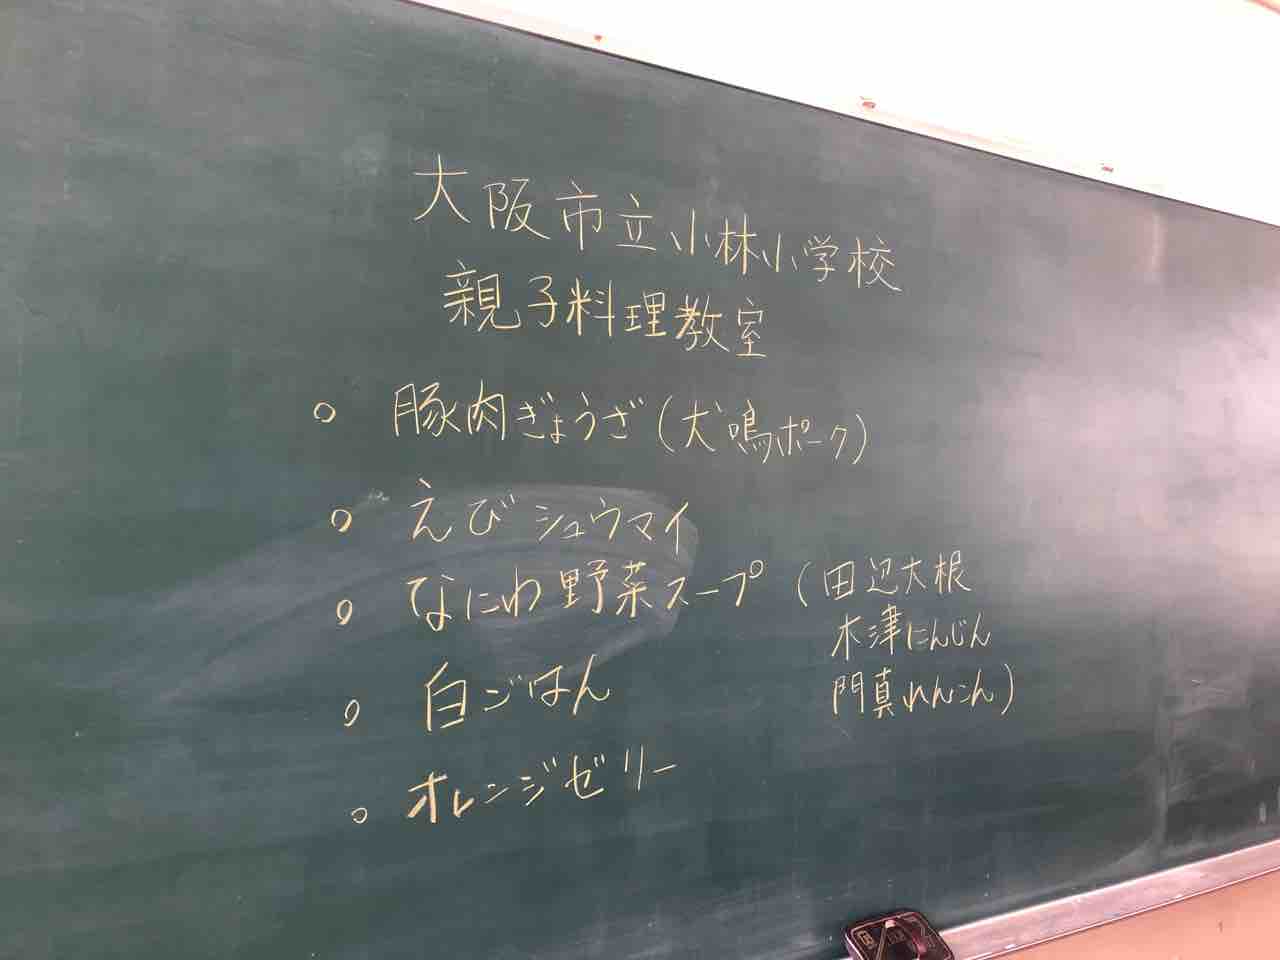 大阪市立小林小学校
親子料理教室
○ 豚肉ぎょうざ(犬鳴ポーク)
○ えびシュウマイ
○ なにわ野菜スープ(田辺大根
木津にんじん
門真れんこん)
○ 白ごはん
○ オレンジゼリー